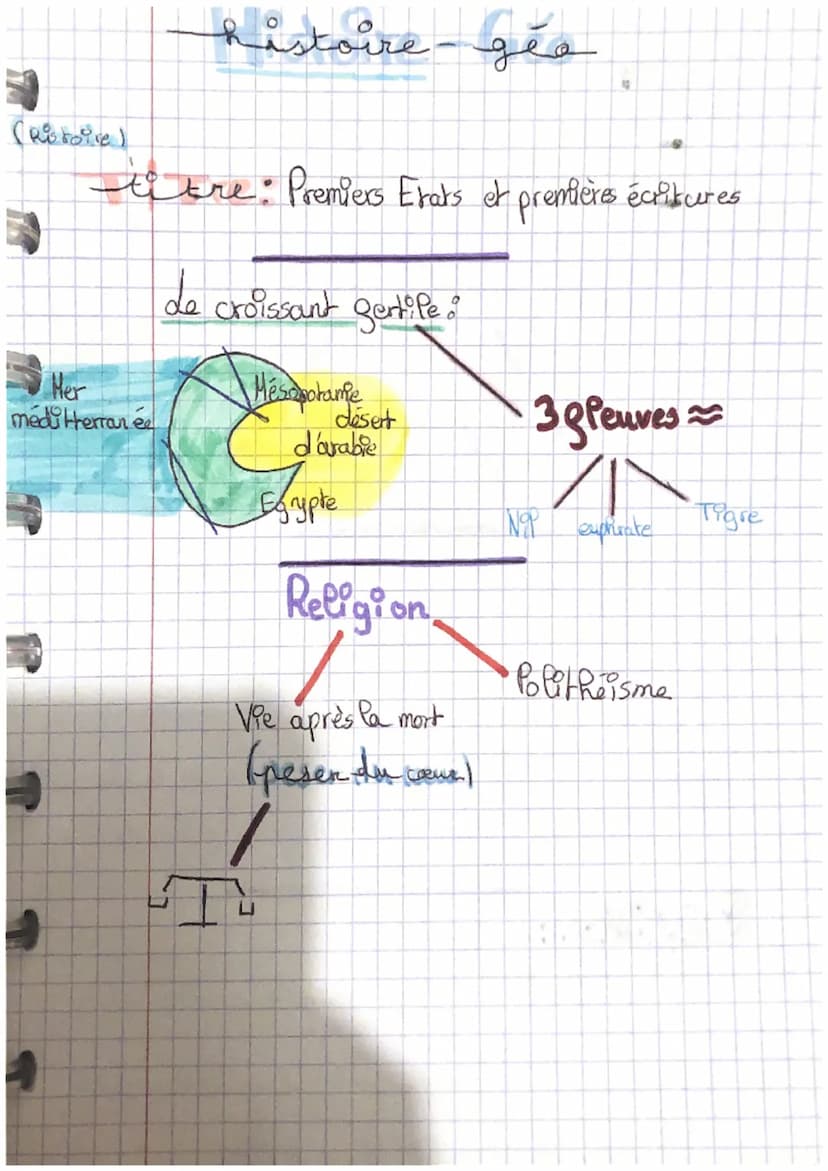 histoire-géo
(histoire)
titre: Premiers Etats et premières écritures
Le croissant fertile:
Mer
méditerranée
Mésopotamie
désert
d'arabie
Egypte
3 fleuves ≈
Nil
euphrate
Tigre
Religion
Polithéisme
Vie après la mort
(peser du cœur)